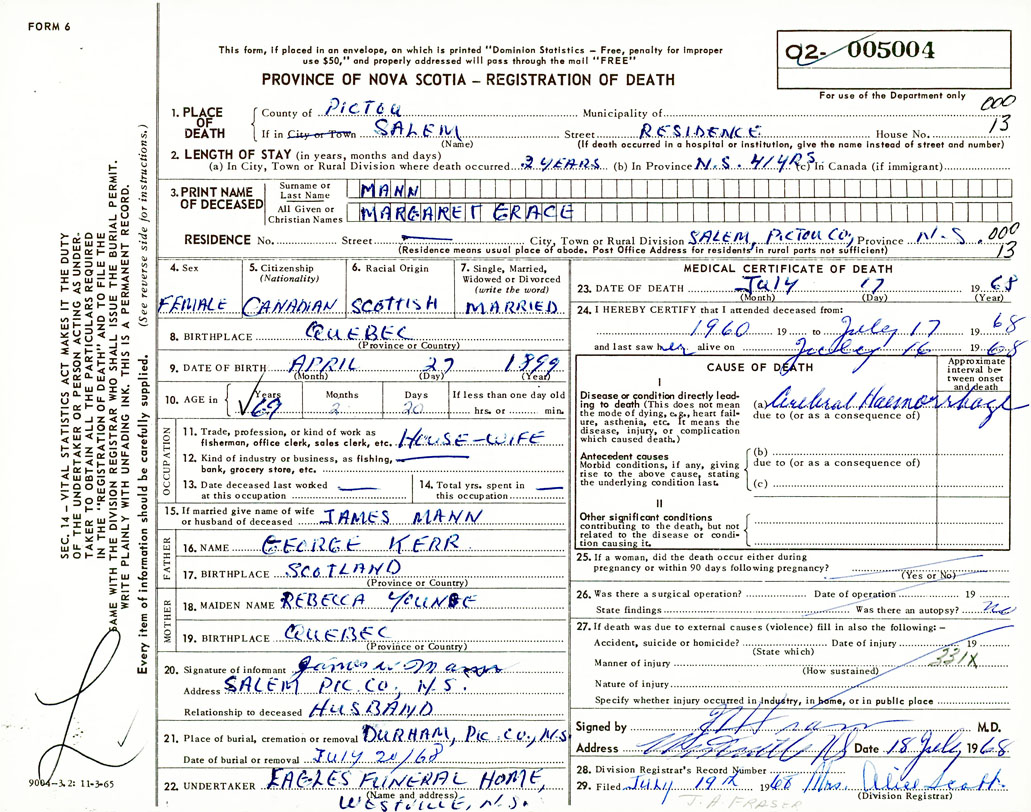 FORM 6
This form, if placed in an envelope, on which is printed "Dominion Statistics – Free, penalty for improper
use $50," and properly addressed will pass through the mail "FREE"
PROVINCE OF NOVA SCOTIA – REGISTRATION OF DEATH
Q2- 005004
For use of the Department only
000
13
1. PLACE OF DEATH County of PICTOU Municipality of
If in City or Town SALEM Street RESIDENCE House No.
(Name) (If death occurred in a hospital or institution, give the name instead of street and number)
2. LENGTH OF STAY (in years, months and days)
(a) In City, Town or Rural Division where death occurred 2 YEARS (b) In Province N.S. 41 YRS (c) In Canada (if immigrant)
3. PRINT NAME OF DECEASED Surname or Last Name MANN
All Given or Christian Names MARGARET GRACE
RESIDENCE No. Street City, Town or Rural Division SALEM, PICTOU CO, Province N.S. 000
(Residence means usual place of abode. Post Office Address for residents in rural parts not sufficient) 13
4. Sex FEMALE
5. Citizenship (Nationality) CANADIAN
6. Racial Origin SCOTTISH
7. Single, Married, Widowed or Divorced (write the word) MARRIED
8. BIRTHPLACE QUEBEC
(Province or Country)
9. DATE OF BIRTH APRIL 27 1899
(Month) (Day) (Year)
10. AGE in Years 69 Months 2 Days 20 If less than one day old
hrs. or min.
OCCUPATION
11. Trade, profession, or kind of work as
fisherman, office clerk, sales clerk, etc. HOUSE-WIFE
12. Kind of industry or business, as fishing,
bank, grocery store, etc.
13. Date deceased last worked at this occupation
14. Total yrs. spent in this occupation
15. If married give name of wife
or husband of deceased JAMES MANN
FATHER
16. NAME GEORGE KERR
17. BIRTHPLACE SCOTLAND
(Province or Country)
MOTHER
18. MAIDEN NAME REBECCA YOUNGE
19. BIRTHPLACE QUEBEC
(Province or Country)
20. Signature of informant James W Mann
Address SALEM PIC. CO, N.S.
Relationship to deceased HUSBAND
21. Place of burial, cremation or removal DURHAM, PIC CO, N.S
Date of burial or removal JULY 20/68
22. UNDERTAKER EAGLES FUNERAL HOME,
(Name and address)
WESTVILLE, N.S.
MEDICAL CERTIFICATE OF DEATH
23. DATE OF DEATH July 17 1968
(Month) (Day) (Year)
24. I HEREBY CERTIFY that I attended deceased from:
1960 19 to July 17 1968
and last saw her alive on July 16 1968
CAUSE OF DEATH
Approximate interval between onset and death
I
Disease or condition directly leading to death (This does not mean the mode of dying, e.g., heart failure, asthenia, etc. It means the disease, injury, or complication which caused death.)
(a) Cerebral Haemorrhage
due to (or as a consequence of)
Antecedent causes
Morbid conditions, if any, giving rise to the above cause, stating the underlying condition last.
(b)
due to (or as a consequence of)
(c)
II
Other significant conditions
contributing to the death, but not related to the disease or condition causing it.
25. If a woman, did the death occur either during
pregnancy or within 90 days following pregnancy?
(Yes or No)
26. Was there a surgical operation? Date of operation 19
State findings Was there an autopsy? no
27. If death was due to external causes (violence) fill in also the following: –
Accident, suicide or homicide? Date of injury 19
(State which) 331X
Manner of injury
(How sustained)
Nature of injury
Specify whether injury occurred in industry, in home, or in public place
Signed by M.D.
Address Date 18 July 1968
28. Division Registrar's Record Number
29. Filed July 19th 1968 Mrs. Alice Scott.
(Division Registrar)
J.A. FRASER
SEC. 14 – VITAL STATISTICS ACT MAKES IT THE DUTY
OF THE UNDERTAKER OR PERSON ACTING AS UNDER-
TAKER TO OBTAIN ALL THE PARTICULARS REQUIRED
IN THE "REGISTRATION OF DEATH" AND TO FILE THE
SAME WITH THE DIVISION REGISTRAR WHO SHALL ISSUE THE BURIAL PERMIT.
WRITE PLAINLY WITH UNFADING INK. THIS IS A PERMANENT RECORD.
Every item of information should be carefully supplied. (See reverse side for instructions.)
9004-3.2: 11-3-65